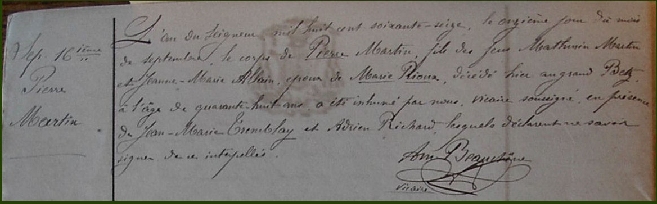 Sep. 16ième
Pierre
Martin
L'an du Seigneur mil huit cent soixante-seize, le onzième jour du mois
de septembre, le corps de Pierre Martin, fils des feus Mathurin Martin
et Jeanne-Marie Allain, époux de Marie Rioux, décédé hier au grand
à l'âge de quarante-huit ans a été inhumé par nous, vicaire soussigné, en présence
de Jean-Marie Tremblay et Adrien Richard, lesquels déclarent ne savoir
signer de ce interpellés.
vicaire